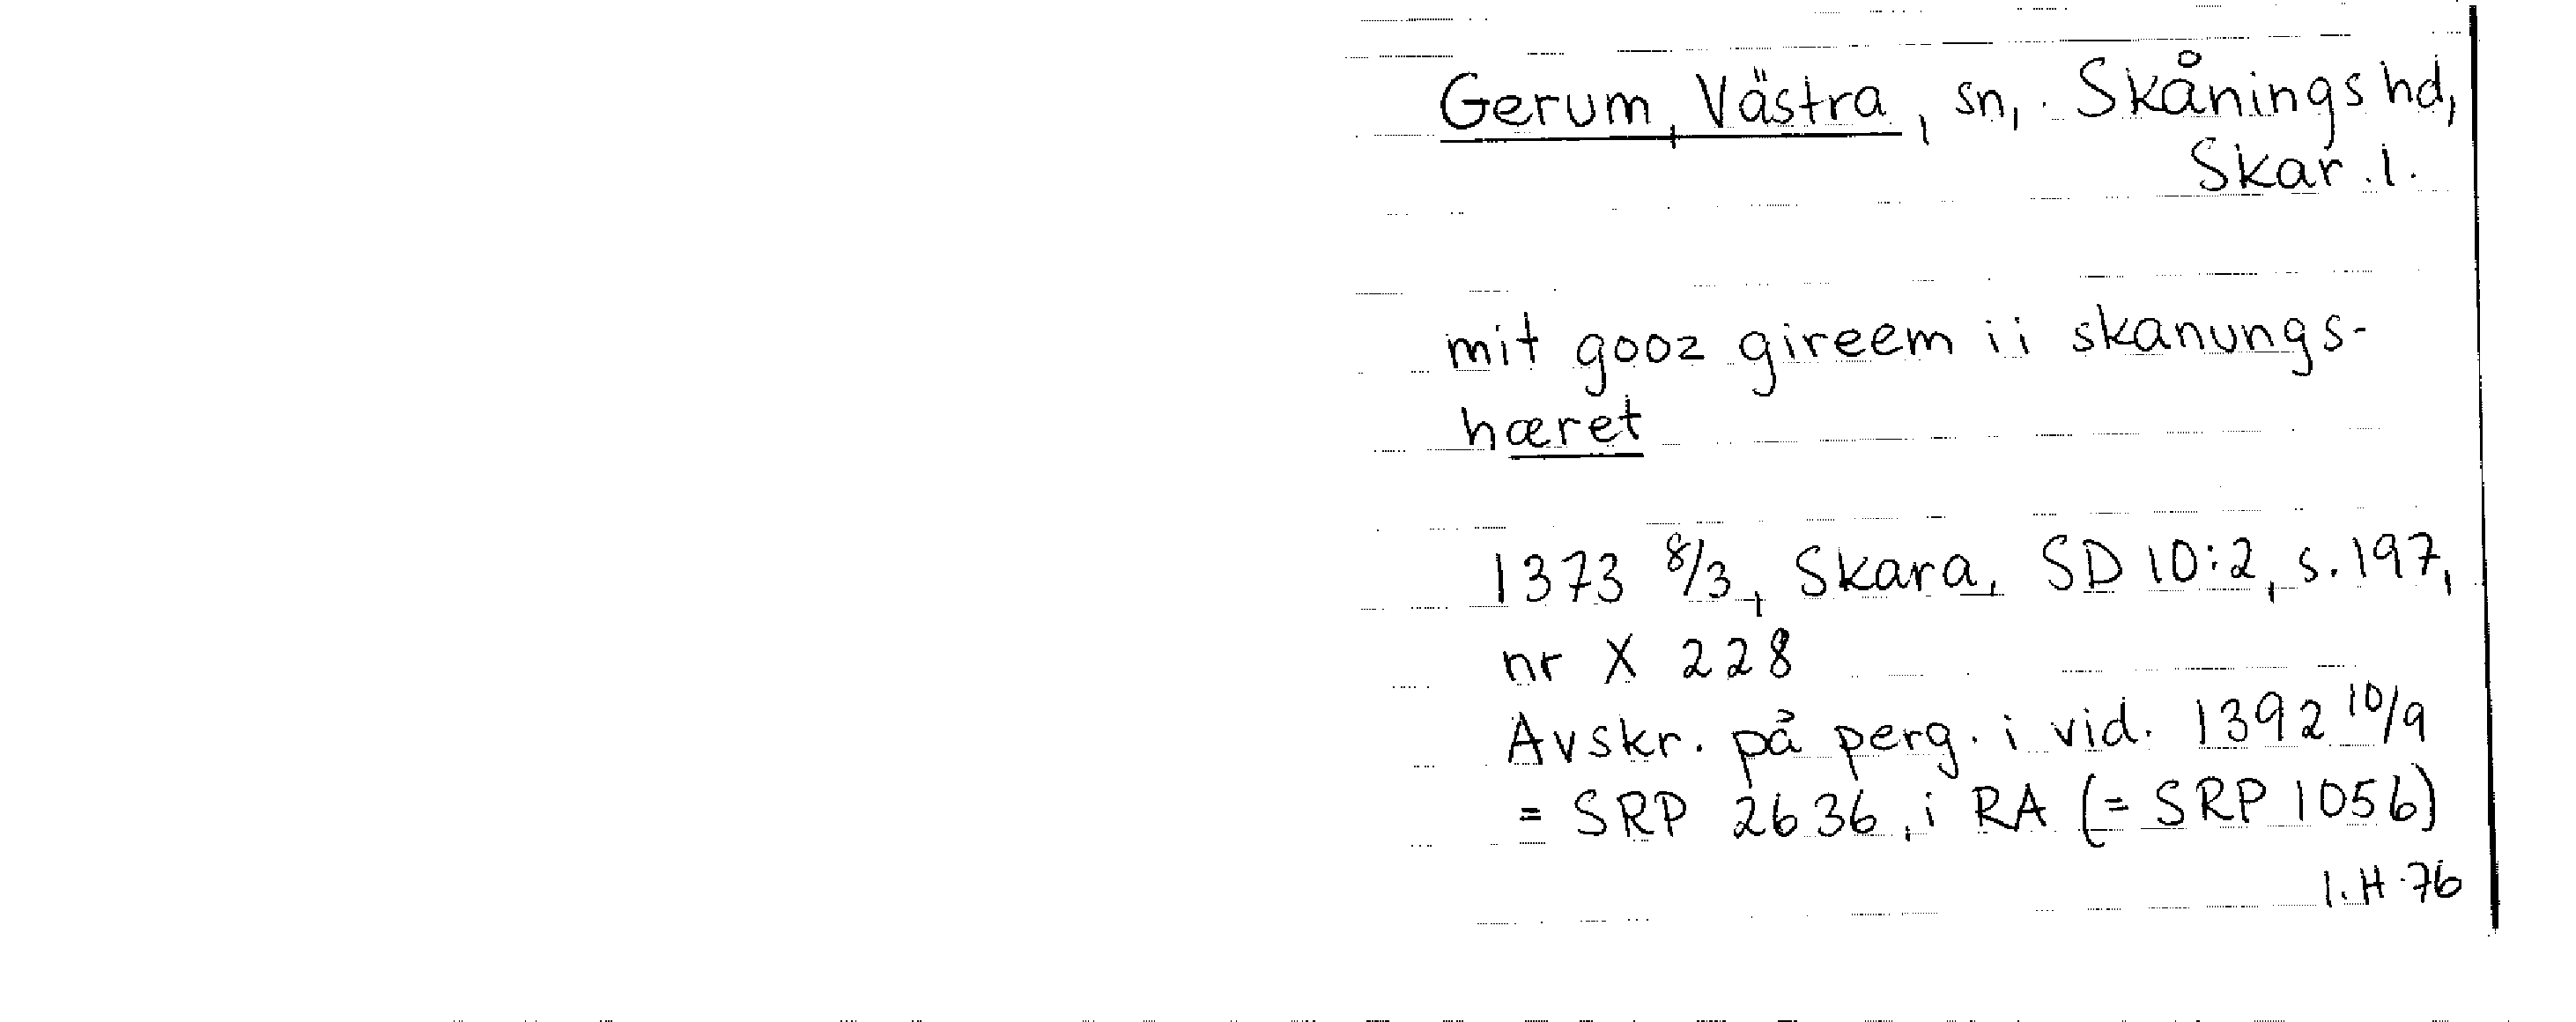 Gerum, Västra, sn, Skånings hd,
Skar. l.
mit gooz gireem ii skanungs-
hæret
1373 8/3, Skara, SD 10:2, s. 197,
nr X 228
Avskr. på perg. i vid. 1392 10/9
= SRP 2636, i RA (= SRP 1056)
I. H 76